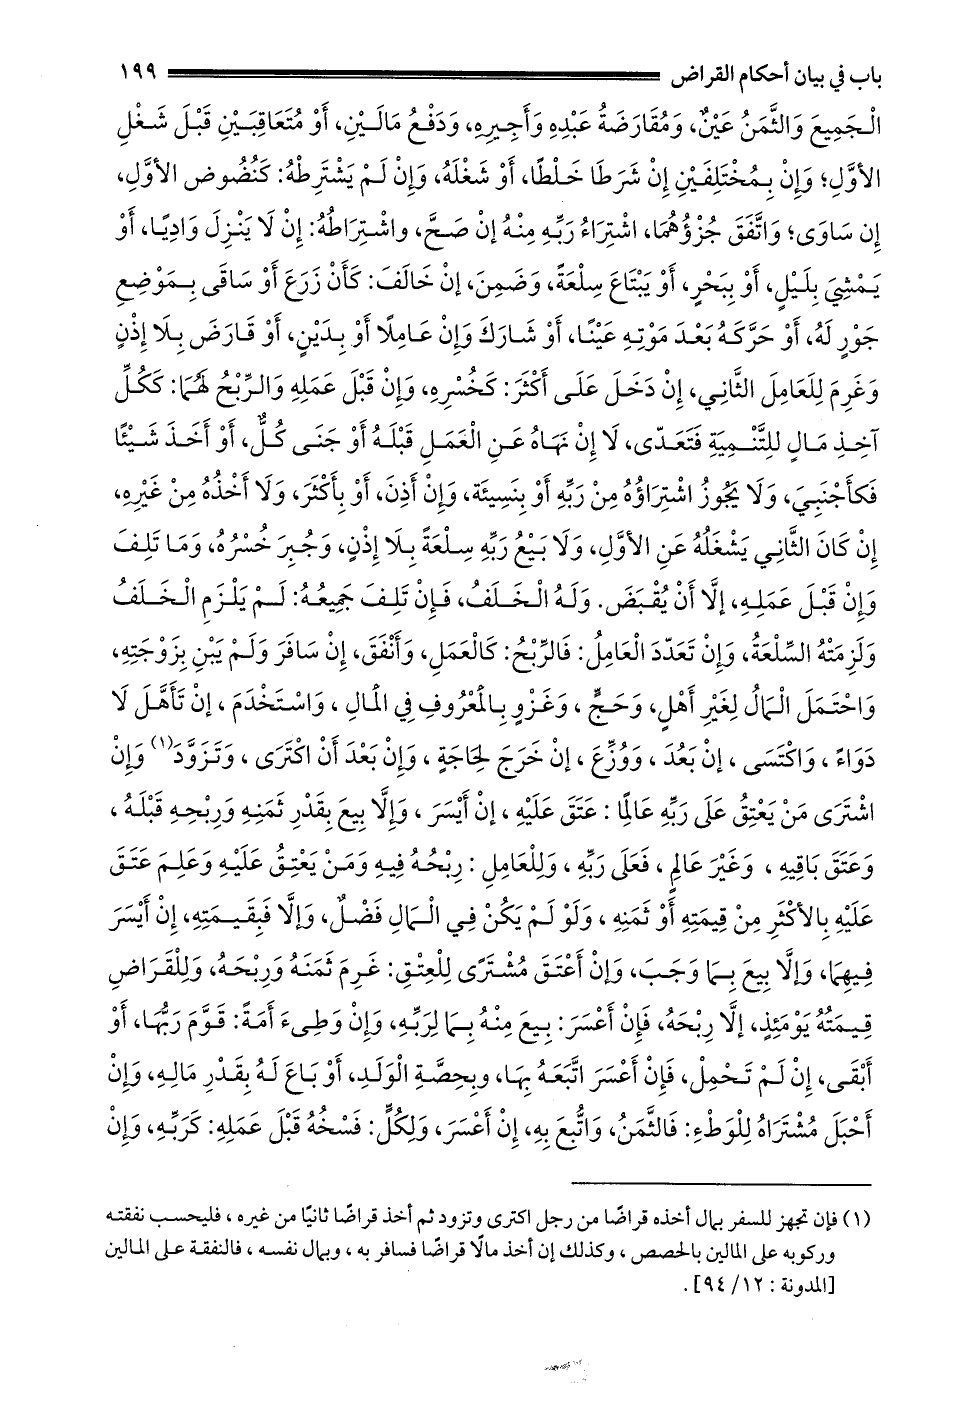 باب في بيان أحكام القراض ١٩٩
الْجَمِيعَ وَالثَّمَنُ عَيْنٌ، وَمُقَارَضَةُ عَبْدِهِ وَأَجِيرِهِ، وَدَفْعُ مَالَيْنِ، أَوْ مُتَعَاقِبَيْنِ قَبْلَ شَغْلِ
الأَوَّلِ؛ وَإِنْ بِمُخْتَلِفَيْنِ إِنْ شَرَطَا خَلْطًا، أَوْ شَغْلَهُ، وَإِنْ لَمْ يَشْتَرِطْهُ: كَنُضُوضِ الأَوَّلِ،
إِن سَاوَى؛ وَاتَّفَقَ جُزْؤُهُمَا، اشْتِرَاءُ رَبِّهِ مِنْهُ إِن صَحَّ، واشْتِرَاطُهُ: إِنْ لَا يَنْزِلَ وَادِيًا، أَوْ
يَمْشِيَ بِلَيْلٍ، أَوْ بِبَحْرٍ، أَوْ يَبْتَاعَ سِلْعَةً، وَضَمِنَ، إِنْ خَالَفَ: كَأَنْ زَرَعَ أَوْ سَاقَى بِمَوْضِعِ
جَوْرٍ لَهُ، أَوْ حَرَّكَهُ بَعْدَ مَوْتِهِ عَيْنًا، أَوْ شَارَكَ وَإِنْ عَامِلًا أَوْ بِدَيْنٍ، أَوْ قَارَضَ بِلَا إِذْنٍ
وَغَرِمَ لِلعَامِلِ الثَّانِي، إِنْ دَخَلَ عَلَى أَكْثَرَ: كَخُسْرِهِ، وَإِنْ قَبْلَ عَمَلِهِ وَالرِّبْحُ لَهُمَا: كَكُلِّ
آخِذِ مَالٍ لِلتَّنْمِيَةِ فَتَعَدّى، لَا إِنْ نَهَاهُ عَنِ الْعَمَلِ قَبْلَهُ أَوْ جَنَى كُلٌّ، أَوْ أَخَذَ شَيْئًا
فَكَأَجْنَبِيَ، وَلَا يَجُوزُ اشْتِرَاؤُهُ مِنْ رَبِّهِ أَوْ بِنَسِيئَة، وَإِنْ أَذِنَ، أَوْ بِأَكْثَرَ، وَلَا أَخْذُهُ مِنْ غَيْرِهِ،
إِنْ كَانَ الثَّانِي يَشْغَلُهُ عَنِ الأَوَّلِ، وَلَا بَيْعُ رَبِّهِ سِلعَةً بِلَا إِذْنٍ، وَجُبِرَ خُسْرُهُ، وَمَا تَلِفَ
وَإِنْ قَبْلَ عَمَلِهِ، إِلَّا أَنْ يُقْبَضَ. وَلَهُ الْخَلَفُ، فَإِنْ تَلِفَ جَمِيعُهُ: لَمْ يَلْزَمِ الْخَلَفُ
وَلَزِمَتْهُ السِّلْعَةُ، وَإِنْ تَعَدّدَ الْعَامِلُ: فَالرِّبْحُ: كَالْعَمَلِ، وَأَنْفَقَ، إِنْ سَافَرَ وَلَمْ يَبْنِ بِزَوْجَتِهِ،
وَاحْتَمَلَ الْمَالُ لِغَيْرِ أَهْلٍ، وَحَجٍّ ، وَغَزْوٍ بِالْمَعْرُوفِ فِي الْمَالِ ، وَاسْتَخْدَمَ ، إِنْ تَأَهَّلَ لَا
دَوَاءً ، وَاكْتَسَى ، إِنْ بَعُدَ ، وَوُزِّعَ ، إِنْ خَرَجَ لِحَاجَةٍ ، وَإِنْ بَعْدَ أَنْ اكْتَرَى ، وَتَزَوَّدَ(١) وَإِنْ
اشْتَرَى مَنْ يَعْتِقُ عَلَى رَبِّهِ عَالِمًا : عَتَقَ عَلَيْهِ ، إِنْ أَيْسَرَ ، وَإِلَّا بِيعَ بِقَدْرِ ثَمَنِهِ وَرِبْحِهِ قَبْلَهُ ،
وَعَتَقَ بَاقِيهِ ، وَغَيْرَ عَالِمٍ ، فَعَلَى رَبِّهِ ، وَلِلْعَامِلِ : رِبْحُهُ فِيهِ وَمَنْ يَعْتِقُ عَلَيْهِ وَعَلِمَ عَتَقَ
عَلَيْهِ بِالأَكْثَرِ مِنْ قِيمَتِهِ أَوْ ثَمَنِهِ ، وَلَوْ لَمْ يَكُنْ فِي الْمَالِ فَضْلٌ، وَإِلَّا فَبِقِيمَتِهِ، إِنْ أَيْسَرَ
فِيهِمَا، وَإِلَّا بِيعَ بِمَا وَجَبَ، وَإِنْ أَعْتَقَ مُشْتَرًى لِلْعِتْقِ: غَرِمَ ثَمَنَهُ وَرِبْحَهُ، وَلِلْقَرَاضِ
قِيمَتُهُ يَوْمَئِذٍ، إِلَّا رِبْحَهُ، فَإِنْ أَعْسَرَ: بِيعَ مِنْهُ بِمَا لِرَبِّهِ، وَإِنْ وَطِىءَ أَمَةً: قَوَّمَ رَبُّهَا، أَوْ
أَبْقَى، إِنْ لَمْ تَحْمِلْ، فَإِنْ أَعْسَرَ اتَّبَعَهُ بِهَا، وبِحِصَّةِ الْوَلَدِ، أَوْ بَاعَ لَهُ بِقَدْرِ مَالِهِ، وَإِنْ
أَحْبَلَ مُشْتَرَاهُ لِلْوَطْءِ: فَالثَّمَنُ، وَاتُّبِعَ بِهِ، إِنْ أَعْسَرَ، وَلِكُلٍّ: فَسْخُهُ قَبْلَ عَمَلِهِ: كَرَبِّهِ، وَإِنْ
(١) فإن تجهز للسفر بمال أخذه قراضًا من رجل اكترى وتزود ثم أخذ قراضًا ثانيًا من غيره ، فليحسب نفقته
وركوبه على المالين بالحصص ، وكذلك إن أخذ مالًا قراضًا فسافر به ، وبمال نفسه ، فالنفقة على المالين
[المدونة : ١٢/ ٩٤] .